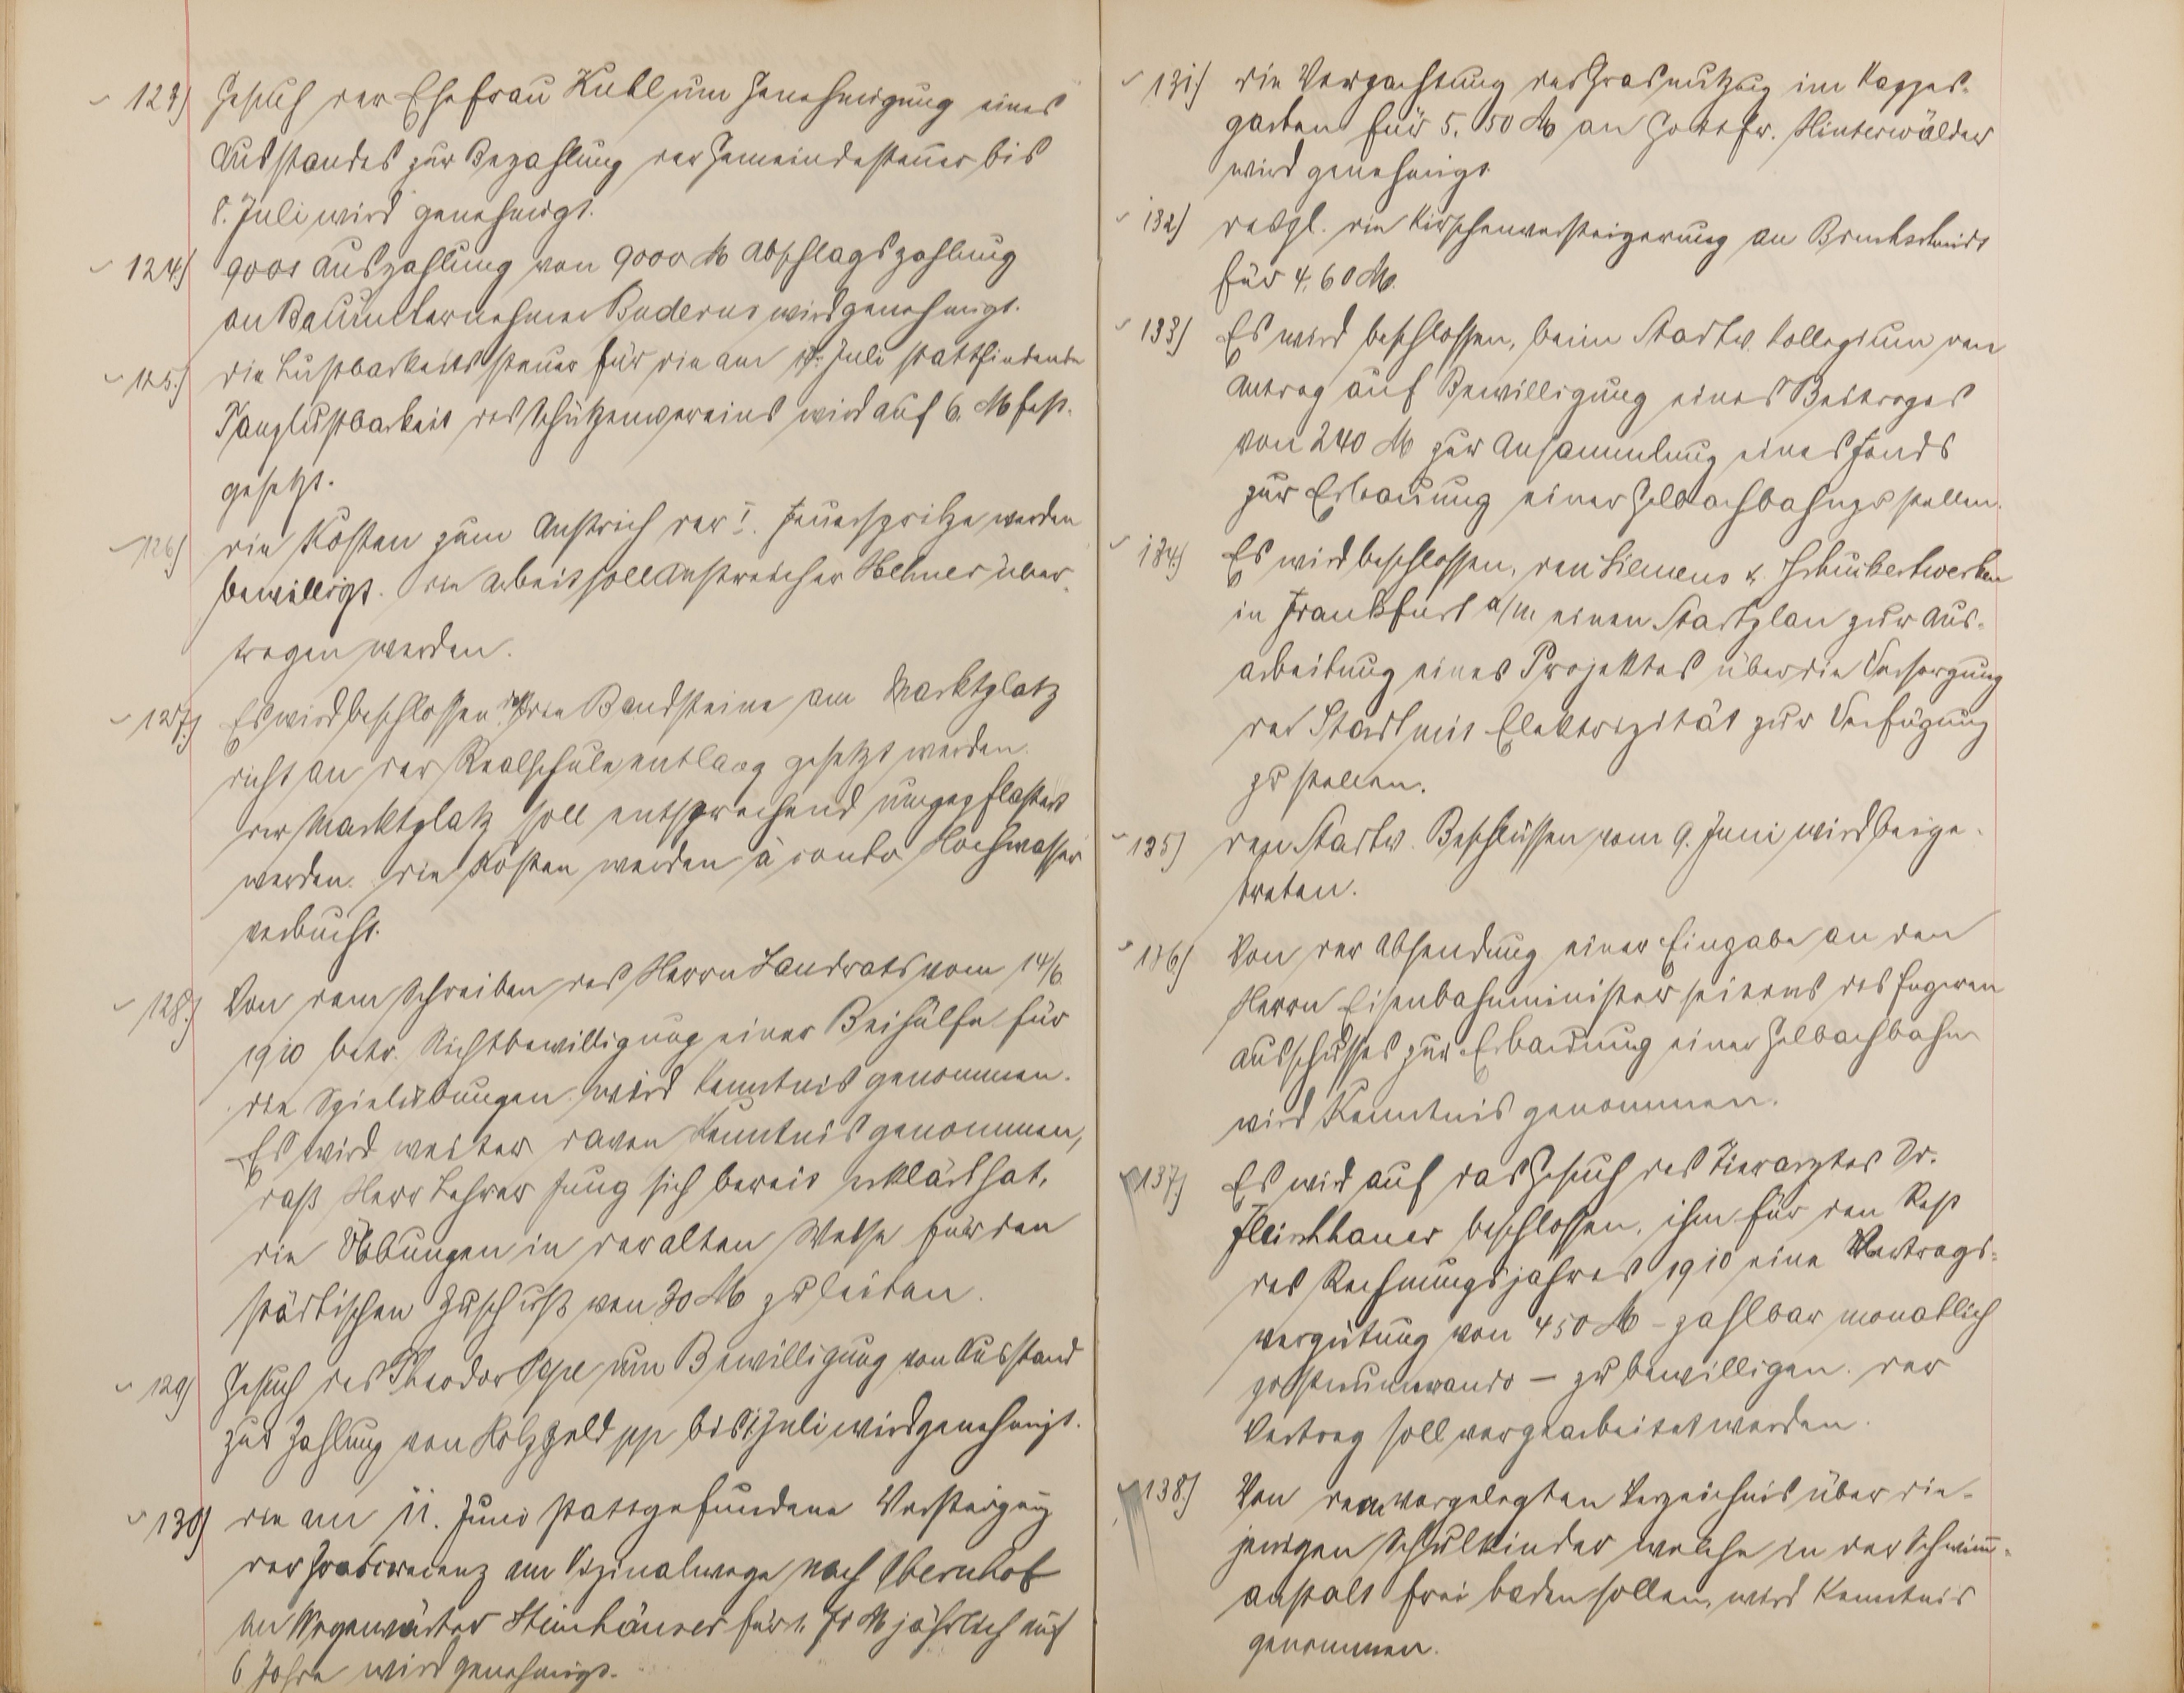 123) Gesuch der Ehefrau Kuhl um Genehmigung eines
Ausstandes zur Bezahlung der Gemeindesteuer bis
8. Juli wird genehmigt.
124) Auszahlung von 9000 M Abschlagszahlung
an Bauunternehmer Buderus wird genehmigt.
125.) die Lustbarkeitssteuer für die am Juli stattfindende
Tanzlustbarkeit des Schützenvereins wird auf 6. M fest-
gesetzt.
126) die Kosten zum Anstrich der I. Feuerspritze werden
bewilligt. die Arbeit soll Anstreicher Hehner über-
tragen werden.
127.) Es wird beschlossen, die Bandsteine am Marktplatz
dicht an der Realschule entlang gesetzt werden.
der Marktplatz soll entsprechend umgepflastert
werden. die Kosten werden à conto Hochwasser
verbucht.
128.) Von dem Schreiben des Herrn Landrats vom 14/6.
1910 betr. Nichtbewilligung einer Beihülfe für
die Spielübungen wird Kenntnis genommen.
Es wird weiter davon Kenntnis genommen,
daß Herr Lehrer Jung sich bereit erklärt hat,
die Übungen in der alten Weise für den
städtischen Zuschuß von 30 M zu leiten.
129) Gesuch des Theodor Pape um Bewilligung von Ausstand
zur Zahlung von Holzgeld pp bis 1. Juli wird genehmigt.
130) die am 11. Juni stattgefundene Versteigerung
der Grascrescenz am Vizinalwege nach Obernhof
an Wegewärter Steinhäuser für 1. 70 M jährlich auf
6 Jahre wird genehmigt.
131.) die Verpachtung der Grasnutzung im Kappes-
garten für 5. 50 M an Gottfr. Hinterwälder
wird genehmigt.
132) desgl. die Kirschenversteigerung an Bruchschmidt
für 4. 60 M.
133) Es wird beschlossen, beim Stadtv. Kollegium den
Antrag auf Bewilligung eines Beitrages
von 240 M zur Ansammlung eines Fonds
zur Erbauung einer Gelbachbahn zu stellen.
134.) Es wird beschlossen, den Siemens & Schuckertwerken
in Frankfurt a/M. einen Stadtplan zur Aus-
arbeitung eines Projektes über die Versorgung
der Stadt mit Elektrizität zur Verfügung
zu stellen.
135) den Stadtv. Beschlüssen vom 9. Juni wird beige-
treten.
136) Von der Absendung einer Eingabe an den
Herrn Eisenbahnminister seitens des engeren
Ausschusses zur Erbauung einer Gelbachbahn
wird Kenntnis genommen.
137.) Es wird auf das Gesuch des Tierarztes Dr.
Fleischhauer beschlossen, ihm für den Rest
des Rechnungsjahres 1910 eine Vertrags-
vergütung von 450 M – zahlbar monatlich
postnumerando – zu bewilligen. der
Vertrag soll vorgearbeitet werden.
138.) Von dem vorgelegten Verzeichnis über die-
jenigen Schulkinder welche in der Schwimm-
anstalt frei baden sollen, wird Kenntnis
genommen.